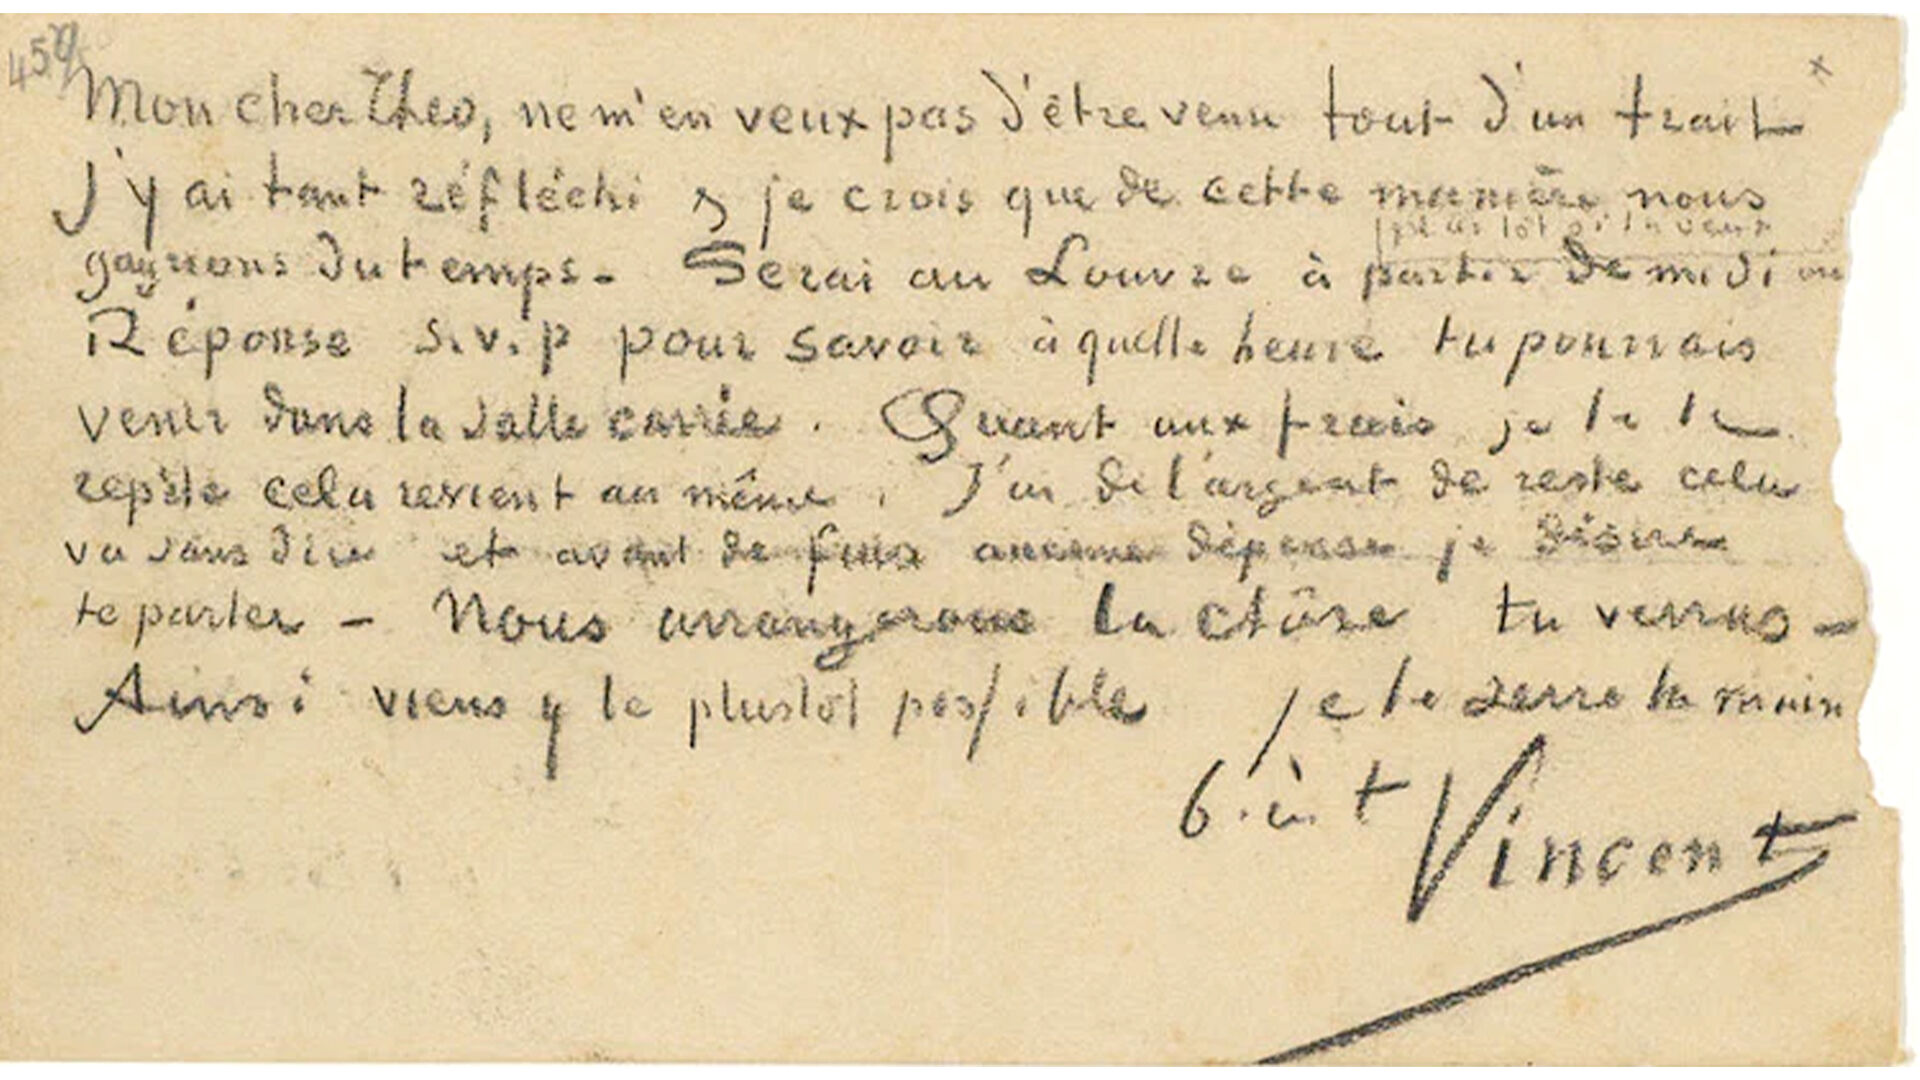 459
x
Mon cher Theo, ne m'en veux pas d'être venu tout d'un trait
J'y ai tant réfléchi & je crois que de cette manière nous
plus tôt si tu veux
gagnons du temps. Serai au Louvre à partir de midi ou
Réponse s.v.p pour savoir à quelle heure tu pourrais
venir dans la Salle carrée. Quant aux frais je te le
repète cela revient au même. J'ai de l'argent de reste cela
va sans dire et avant de faire aucune dépense je désire
te parler – Nous arrangerons la chôse tu verras –
Ainsi viens y le plustôt possible je te serre la main
b. à t
Vincent